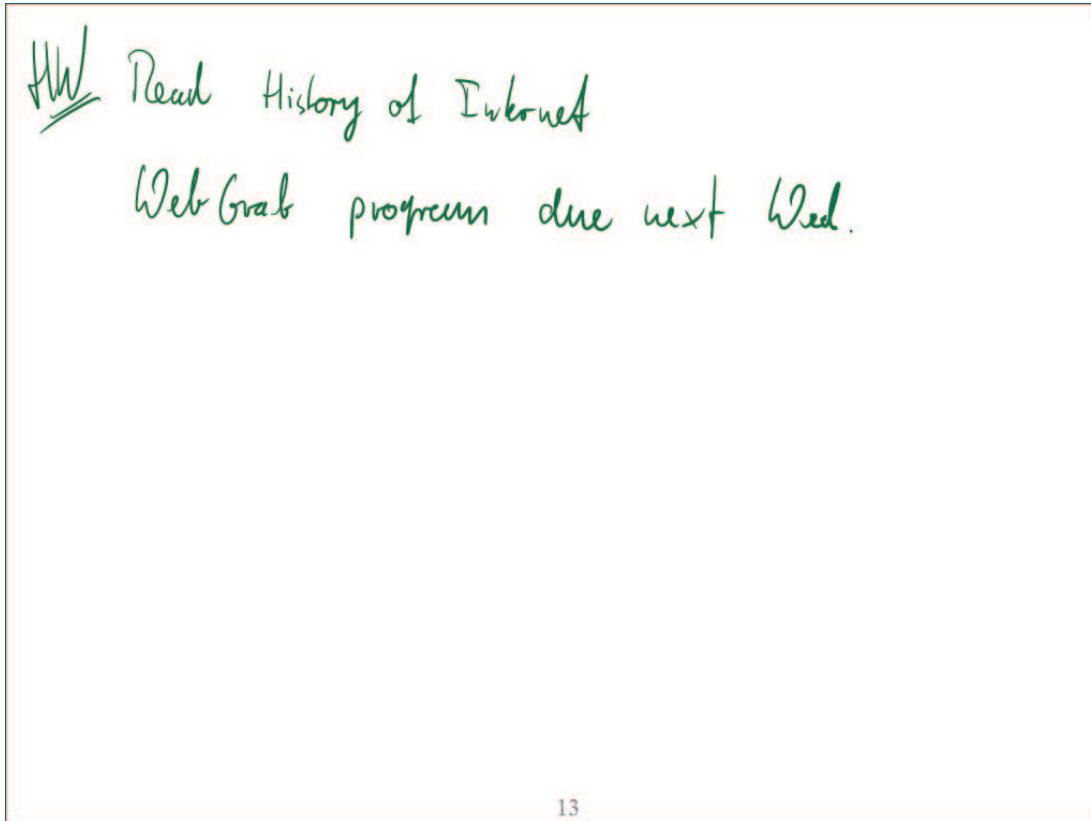 HW Read History of Internet
WebGrab program due next Wed.
13